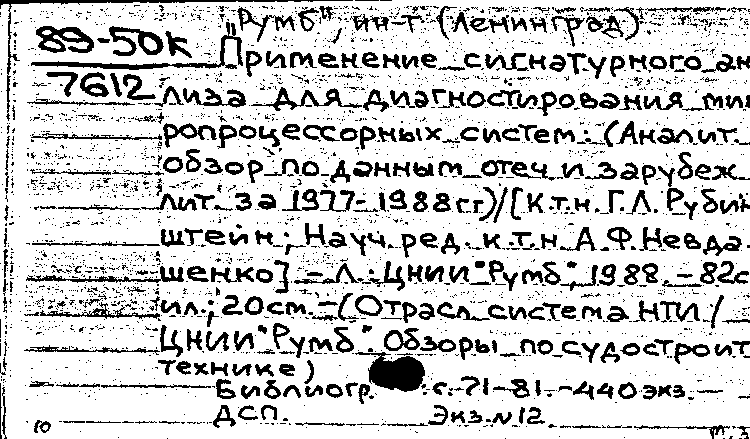 "Румб", ин-т (Ленинград).
89-50к
7612
Применение сигнатурного ан
лиза для диагностирования мик
ропроцессорных систем: (Аналит.
обзор по данным отеч. и зарубеж
лит. за 1977-1988 гг)/[К.т.н. Г.Л. Рубин
штейн; Науч. ред. к.т.н. А.Ф. Невда
шенко]. - Л.: ЦНИИ "Румб", 1988. - 82с
ил.; 20см. - (Отрасл. система НТИ /
ЦНИИ "Румб". Обзоры по судостроит
технике)
Библиогр. : с. 71-81. - 440 экз. -
ДСП. Экз. N12
10